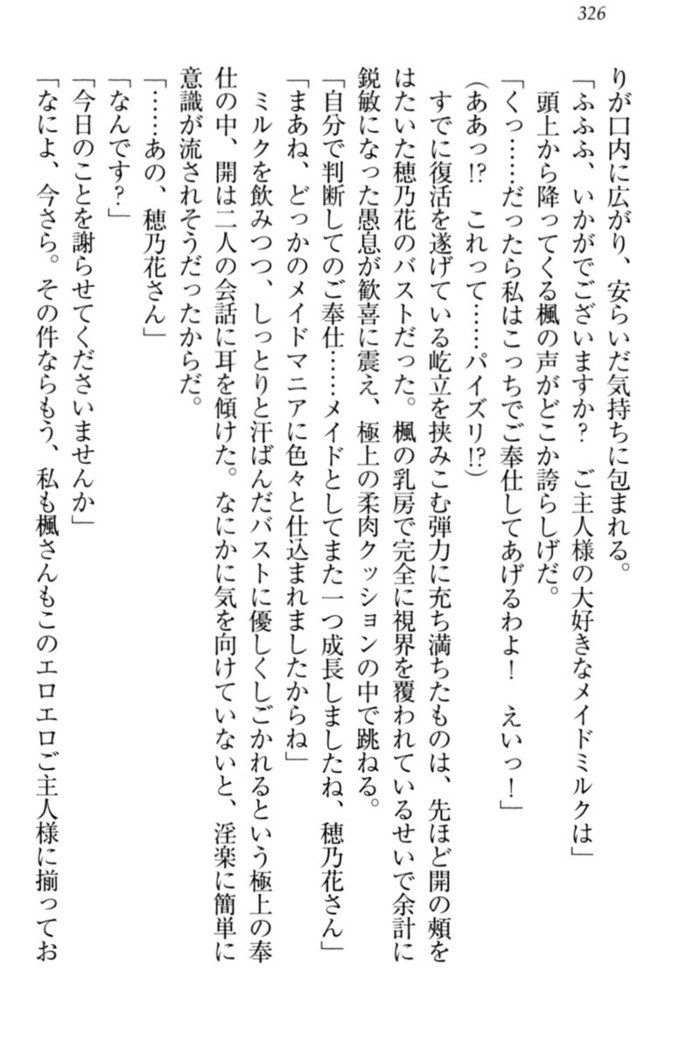 326
りが口内に広がり、安らいだ気持ちに包まれる。
「ふふふ、いかがでございますか？　ご主人様の大好きなメイドミルクは」
頭上から降ってくる楓の声がどこか誇らしげだ。
「くっ……だったら私はこっちでご奉仕してあげるわよ！　えいっ！」
（ああっ!?　これって……パイズリ!?）
すでに復活を遂げている屹立を挟みこむ弾力に充ち満ちたものは、先ほど開の頬を
はたいた穂乃花のバストだった。楓の乳房で完全に視界を覆われているせいで余計に
鋭敏になった愚息が歓喜に震え、極上の柔肉クッションの中で跳ねる。
「自分で判断してのご奉仕……メイドとしてまた一つ成長しましたね、穂乃花さん」
「まあね、どっかのメイドマニアに色々と仕込まれましたからね」
ミルクを飲みつつ、しっとりと汗ばんだバストに優しくしごかれるという極上の奉
仕の中、開は二人の会話に耳を傾けた。なにかに気を向けていないと、淫楽に簡単に
意識が流されそうだったからだ。
「……あの、穂乃花さん」
「なんです？」
「今日のことを謝らせてくださいませんか」
「なによ、今さら。その件ならもう、私も楓さんもこのエロエロご主人様に揃ってお